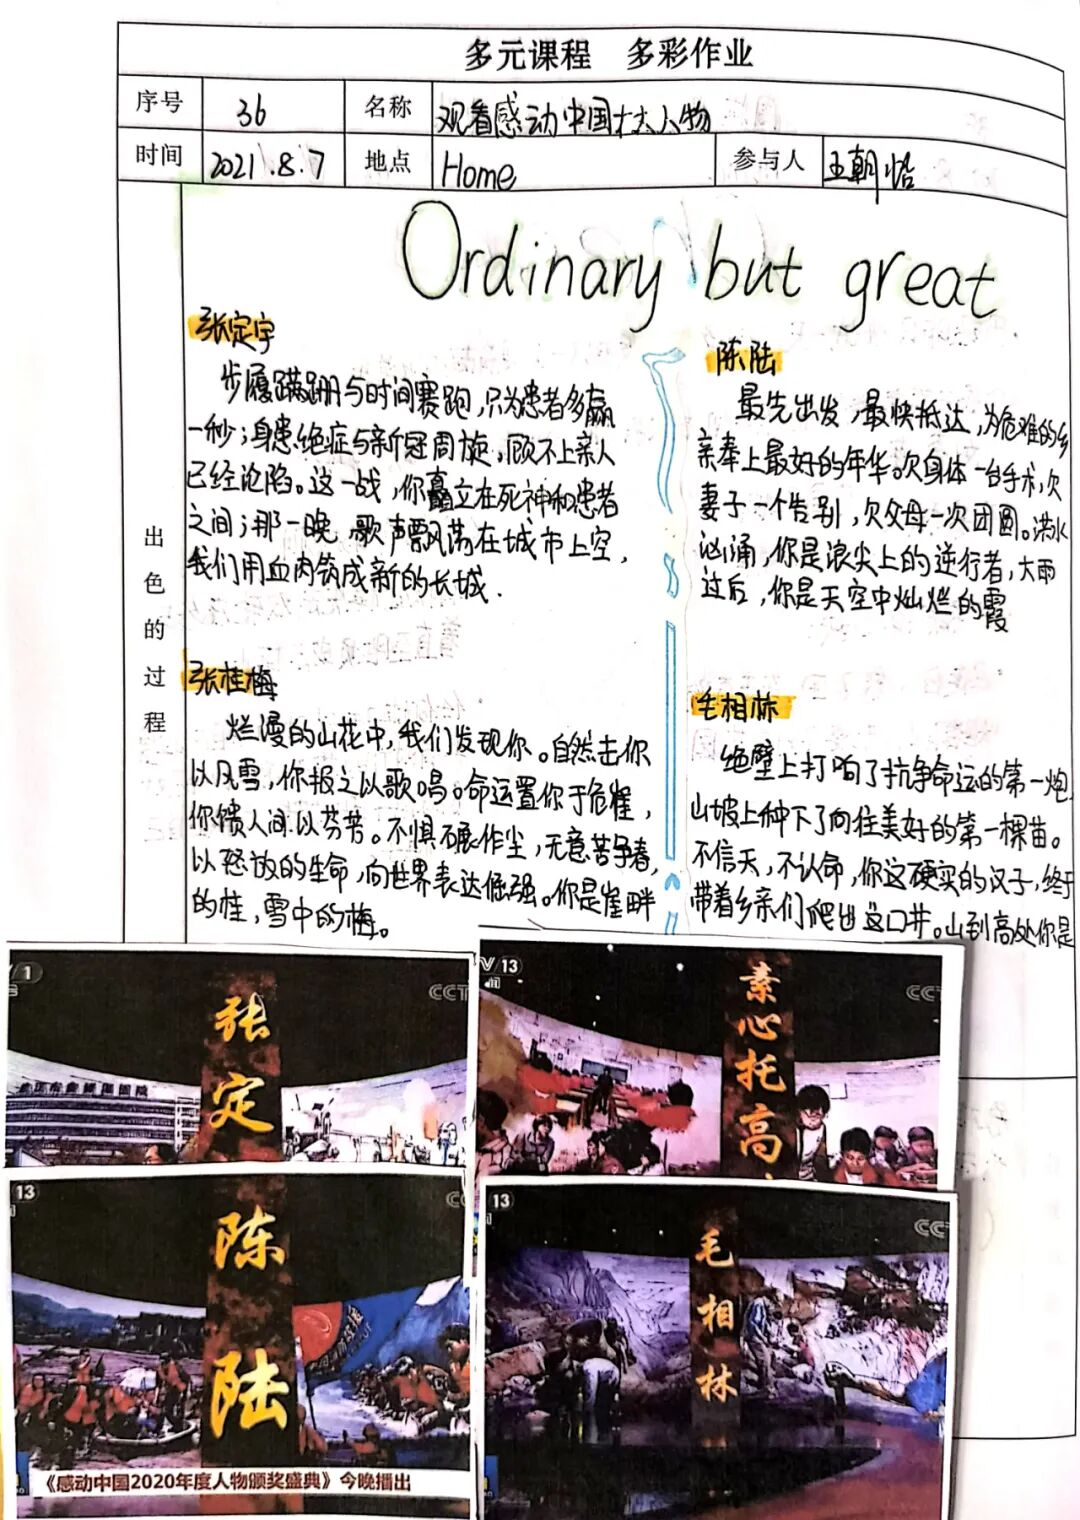 多元课程 多彩作业
序号 36 名称 观看感动中国十大人物
时间 2021.8.7 地点 Home 参与人 王朝怡
出色的过程
Ordinary but great
张定宇
步履蹒跚与时间赛跑,只为患者多赢
一秒;身患绝症与新冠周旋,顾不上亲人
已经沦陷。这一战,你矗立在死神和患者
之间;那一晚,歌声飘荡在城市上空,
我们用血肉筑成新的长城.
张桂梅
烂漫的山花中,我们发现你。自然击你
以风雪,你报之以歌唱。命运置你于危崖,
你馈人间以芬芳。不惧碾作尘,无意苦争春,
以怒放的生命,向世界表达倔强。你是崖畔
的桂,雪中的梅。
陈陆
最先出发,最快抵达,为危难的乡
亲奉上最好的年华。欠身体一台手术,欠
妻子一个告别,欠父母一次团圆。洪水
汹涌,你是浪尖上的逆行者,大雨
过后,你是天空中灿烂的霞
毛相林
绝壁上打响了抗争命运的第一炮,
山坡上种下了向往美好的第一棵苗。
不信天,不认命,你这硬实的汉子,终于
带着乡亲们爬出这口井。山到高处你是
V/1
CCT
张定
V/13
CCT
素心托高
13
CC
陈陆
《感动中国2020年度人物颁奖盛典》今晚播出
13
CCT
毛相林